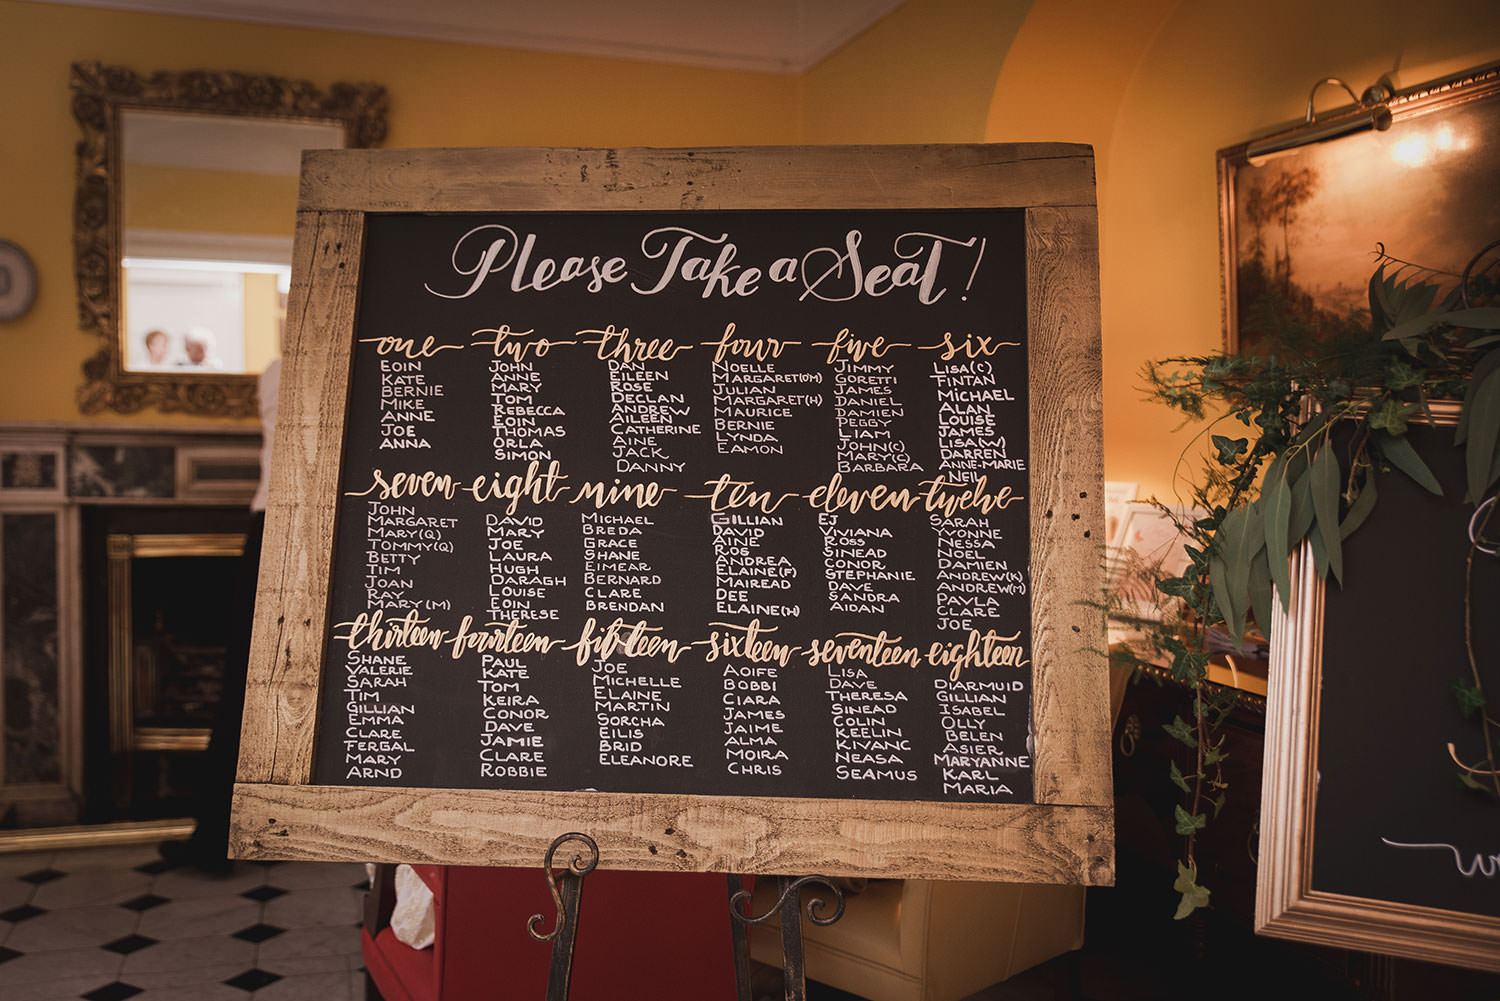 Please Take a Seat!
one
EOIN
KATE
BERNIE
MIKE
ANNE
JOE
ANNA
two
JOHN
ANNE
MARY
TOM
REBECCA
EOIN
THOMAS
ORLA
SIMON
three
DAN
EILEEN
ROSE
DECLAN
ANDREW
AILEEN
CATHERINE
AINE
JACK
DANNY
four
NOELLE
MARGARET(OM)
JULIAN
MARGARET(H)
MAURICE
BERNIE
LYNDA
EAMON
five
JIMMY
GORETTI
JAMES
DANIEL
DAMIEN
PEGGY
LIAM
JOHN(C)
MARY(C)
BARBARA
six
LISA(C)
TINTAN
MICHAEL
ALAN
LOUISE
JAMES
LISA(W)
DARREN
ANNE-MARIE
NEIL
seven
JOHN
MARGARET
MARY(Q)
TOMMY(Q)
BETTY
TIM
JOAN
RAY
MARY(M)
eight
DAVID
MARY
JOE
LAURA
HUGH
DARAGH
LOUISE
EOIN
THERESE
nine
MICHAEL
BREDA
GRACE
SHANE
EIMEAR
BERNARD
CLARE
BRENDAN
ten
GILLIAN
DAVID
AINE
ROS
ANDREA
ELAINE(F)
MAIREAD
DEE
ELAINE(H)
eleven
EJ
VIVIANA
ROSS
SINEAD
CONOR
STEPHANIE
DAVE
SANDRA
AIDAN
twelve
SARAH
YVONNE
NESSA
NOEL
DAMIEN
ANDREW(K)
ANDREW(M)
PAVLA
CLARE
JOE
thirteen
SHANE
VALERIE
SARAH
TIM
GILLIAN
EMMA
CLARE
FERGAL
MARY
ARND
fourteen
PAUL
KATE
TOM
KEIRA
CONOR
DAVE
JAMIE
CLARE
ROBBIE
fifteen
JOE
MICHELLE
ELAINE
MARTIN
SORCHA
EILIS
BRID
ELEANORE
sixteen
AOIFE
BOBBI
CIARA
JAMES
JAIME
ALMA
MOIRA
CHRIS
seventeen
LISA
DAVE
THERESA
SINEAD
COLIN
KEELIN
KIVANC
NEASA
SEAMUS
eighteen
DIARMUID
GILLIAN
ISABEL
OLLY
BELEN
ASIER
MARYANNE
KARL
MARIA